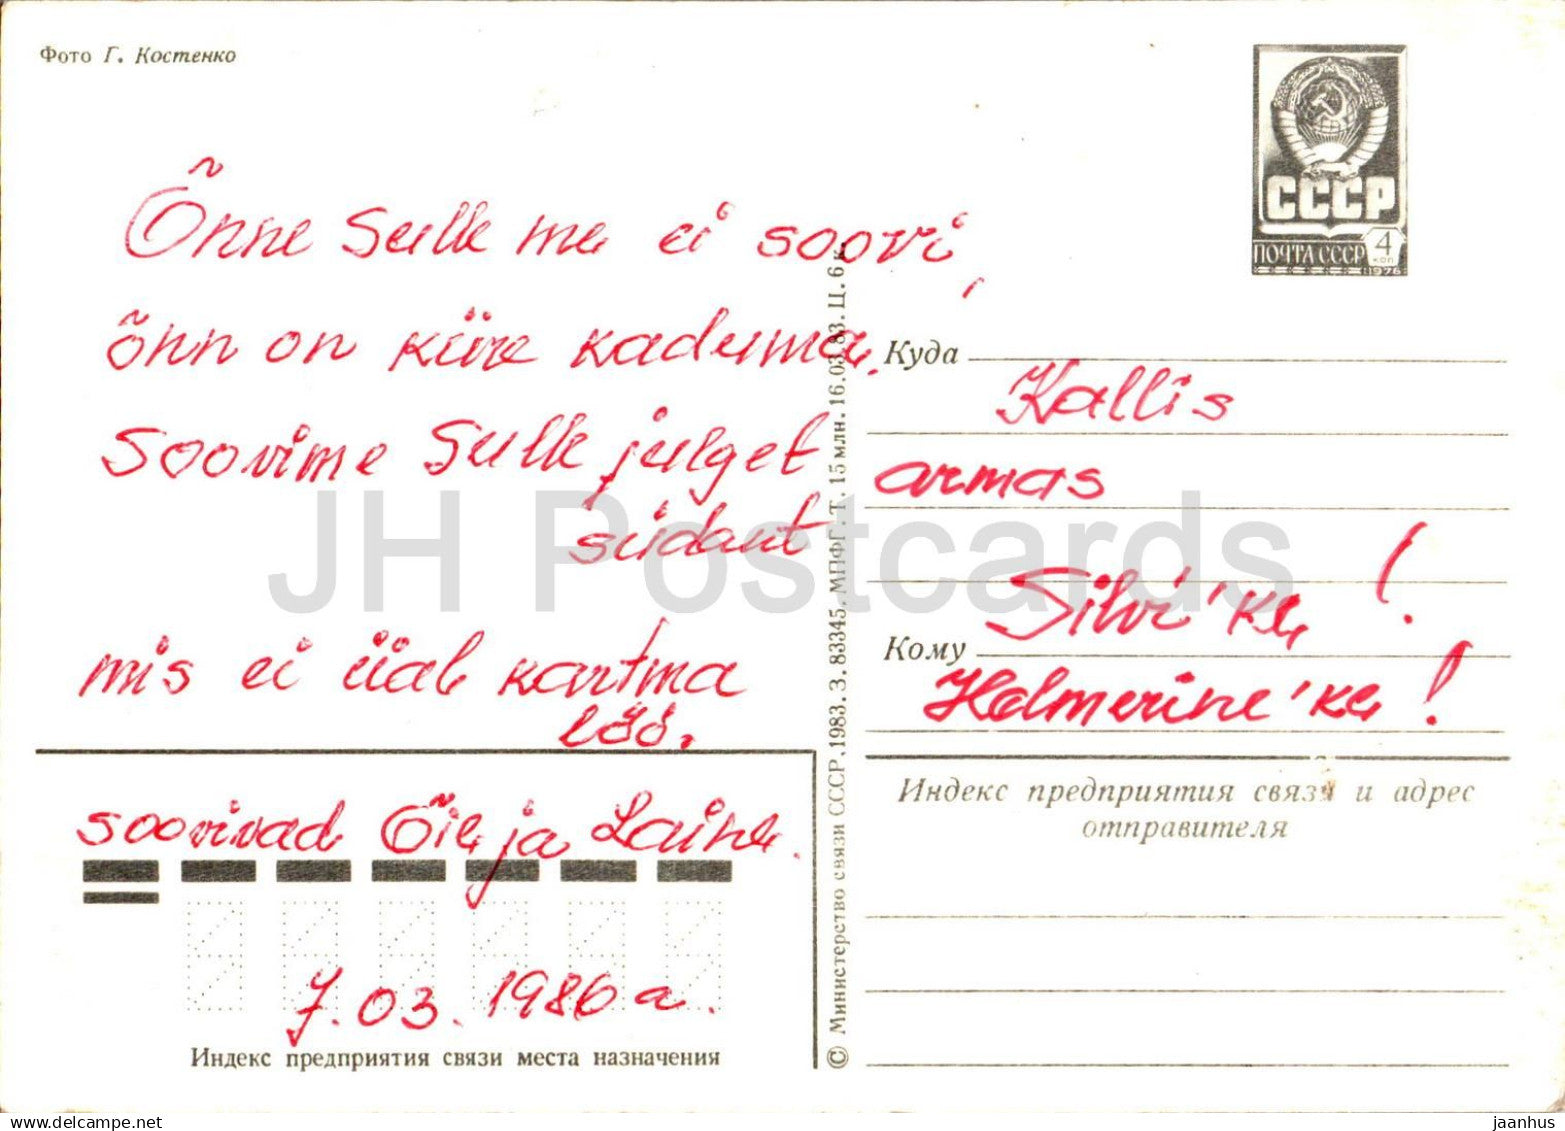 Фото Г. Костенко
Õnne Sulle me ei soovi,
õnn on kiire kaduma.
Soovime Sulle julget
südant
mis ei iial kartma
löö.
soovivad Õie ja Laine.
7.03.1986 a.
Индекс предприятия связи места назначения
© Министерство связи СССР, 1983. З. 83345. МПФГ. Т. 15 млн. 16.03.83. Ц. 6 к.
СССР
ПОЧТА СССР
4
коп
1976
Куда
Kallis
armas
Silvi'ke!
Кому
Helmerine'ke!
Индекс предприятия связи и адрес
отправителя
JH Postcards
delcampe.net
jaanhus